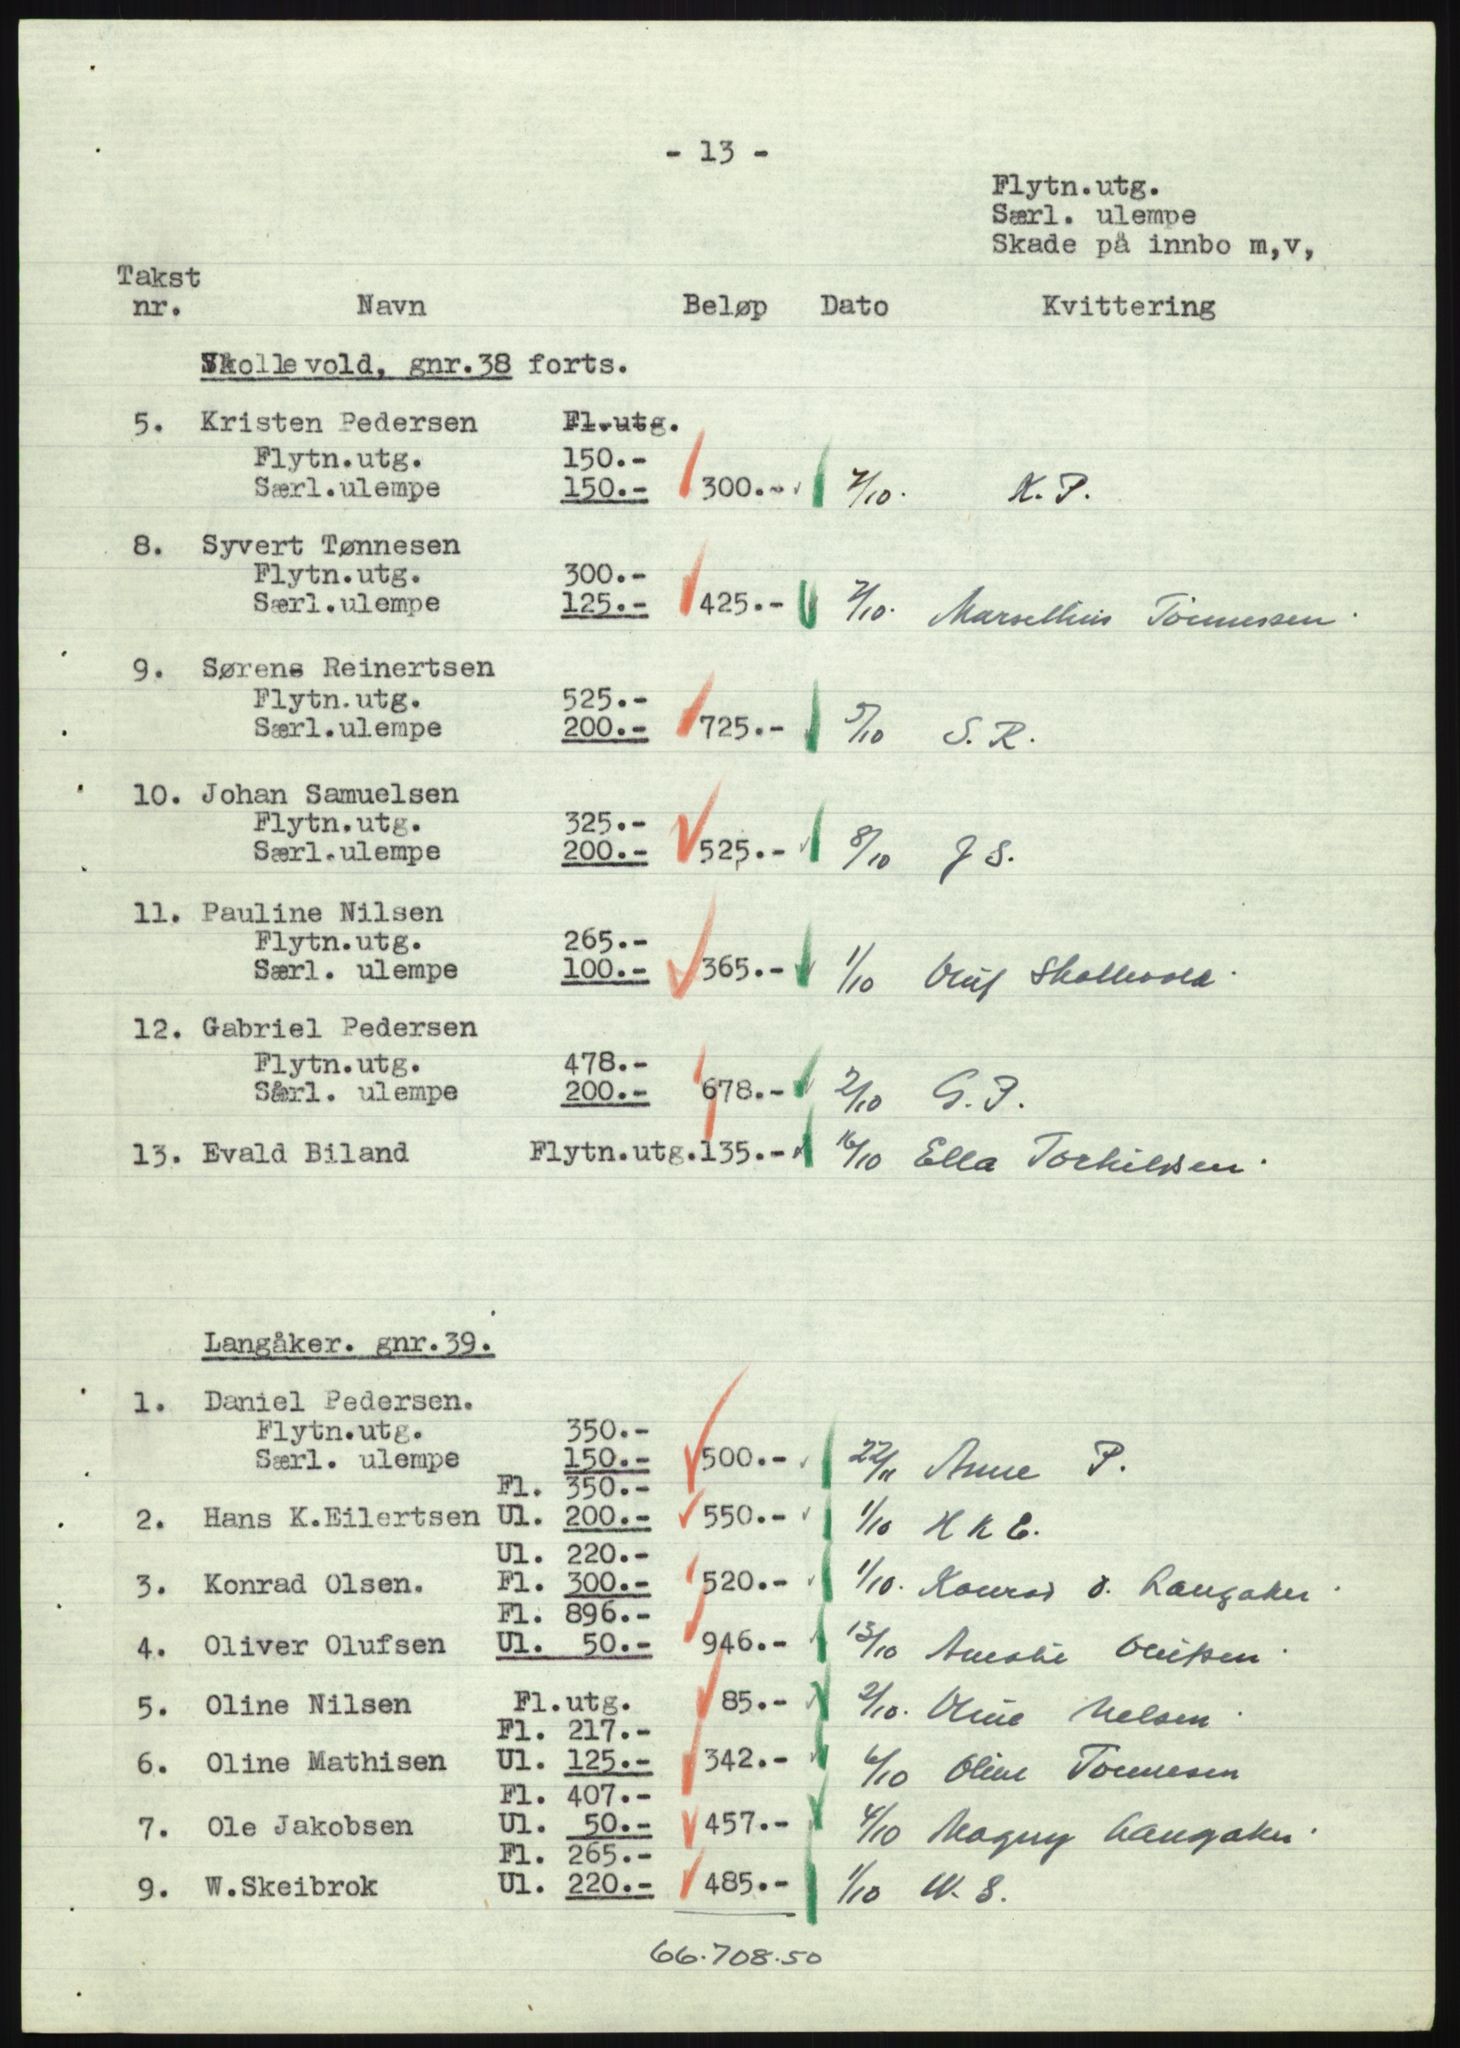 - 13 -
Flytn.utg.
Særl. ulempe
Skade på innbo m,v,
Takst
nr. Navn Beløp Dato Kvittering
Skollevold, gnr.38 forts.
5. Kristen Pedersen Fl.utg.
Flytn.utg. 150.-
Særl.ulempe 150.- 300.- 7/10. K. P.
8. Syvert Tønnesen
Flytn.utg. 300.-
Særl.ulempe 125.- 425.- 7/10. Marselius Tönnessen.
9. Sørens Reinertsen
Flytn.utg. 525.-
Særl.ulempe 200.- 725.- 5/10 S. R.
10. Johan Samuelsen
Flytn.utg. 325.-
Særl.ulempe 200.- 525.- 8/10 J S.
11. Pauline Nilsen
Flytn.utg. 265.-
Særl. ulempe 100.- 365.- 1/10 Oluf Skollevold.
12. Gabriel Pedersen
Flytn.utg. 478.-
Sårl. ulempe 200.- 678.- 2/10 G. P.
13. Evald Biland Flytn.utg.135.- 16/10 Ella Torkildsen.
Langåker. gnr.39.
1. Daniel Pedersen.
Flytn.utg. 350.-
Særl. ulempe 150.- 500.- 22/11 Anne P.
Fl. 350.-
2. Hans K.Eilertsen Ul. 200.- 550.- 1/10 H K E.
Ul. 220.-
3. Konrad Olsen. Fl. 300.- 520.- 1/10. Konrad O. Langaker.
Fl. 896.-
4. Oliver Olufsen Ul. 50.- 946.- 13/10 Olufsen.
5. Oline Nilsen Fl.utg. 85.- 2/10. Oline Nelsen.
Fl. 217.-
6. Oline Mathisen Ul. 125.- 342.- 6/10 Oline Tönnesen
Fl. 407.-
7. Ole Jakobsen Ul. 50.- 457.- 4/10 Magny Langaker.
Fl. 265.-
9. W.Skeibrok Ul. 220.- 485.- 1/10 W. S.
66.708.50